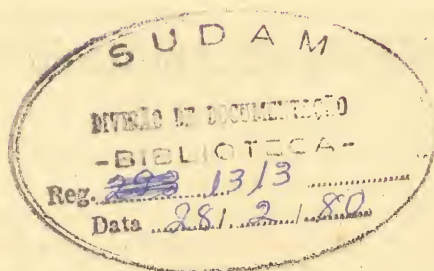 SUDAM
DIVISÃO DE DOCUMENTAÇÃO
-BIBLIOTECA-
Reg. 1313
Data 28/2/80